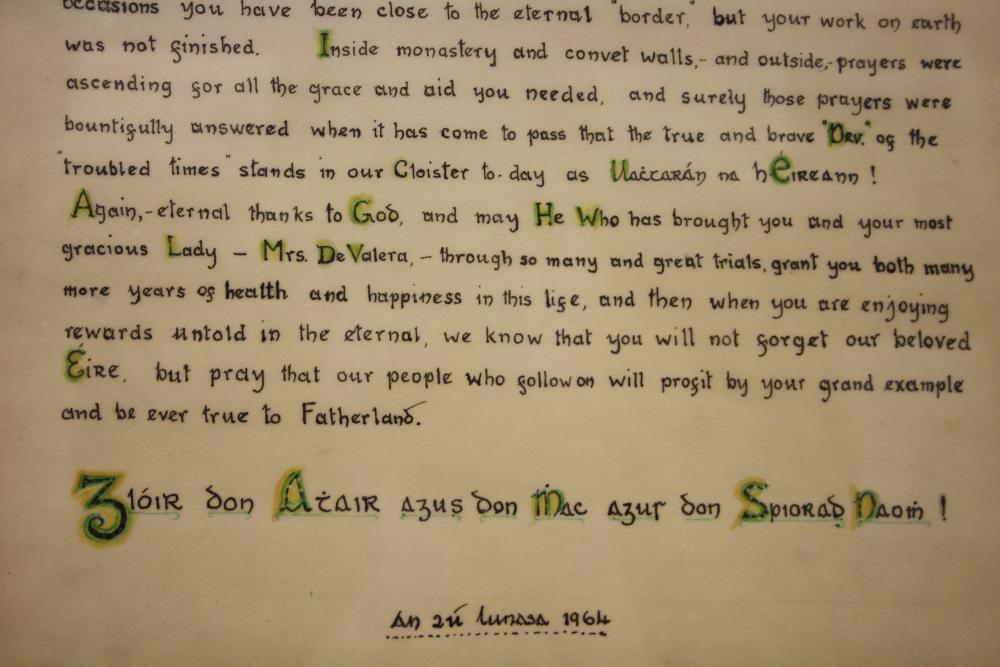 occasions you have been close to the eternal "border," but your work on earth
was not finished. Inside monastery and convet walls,- and outside,-prayers were
ascending for all the grace and aid you needed, and surely those prayers were
bountifully answered when it has come to pass that the true and brave "Dev." of the
"troubled times" stands in our Cloister to-day as Uaċtarán na hÉireann!
Again,-eternal thanks to God, and may He Who has brought you and your most
gracious Lady — Mrs. DeValera, - through so many and great trials, grant you both many
more years of health and happiness in this life, and then when you are enjoying
rewards untold in the eternal, we know that you will not forget our beloved
Éire, but pray that our people who follow on will profit by your grand example
and be ever true to Fatherland.
Glóir don Aṫair agus don Ṁac agus don Spiorad Naoṁ!
An 2ú Lunasa 1964